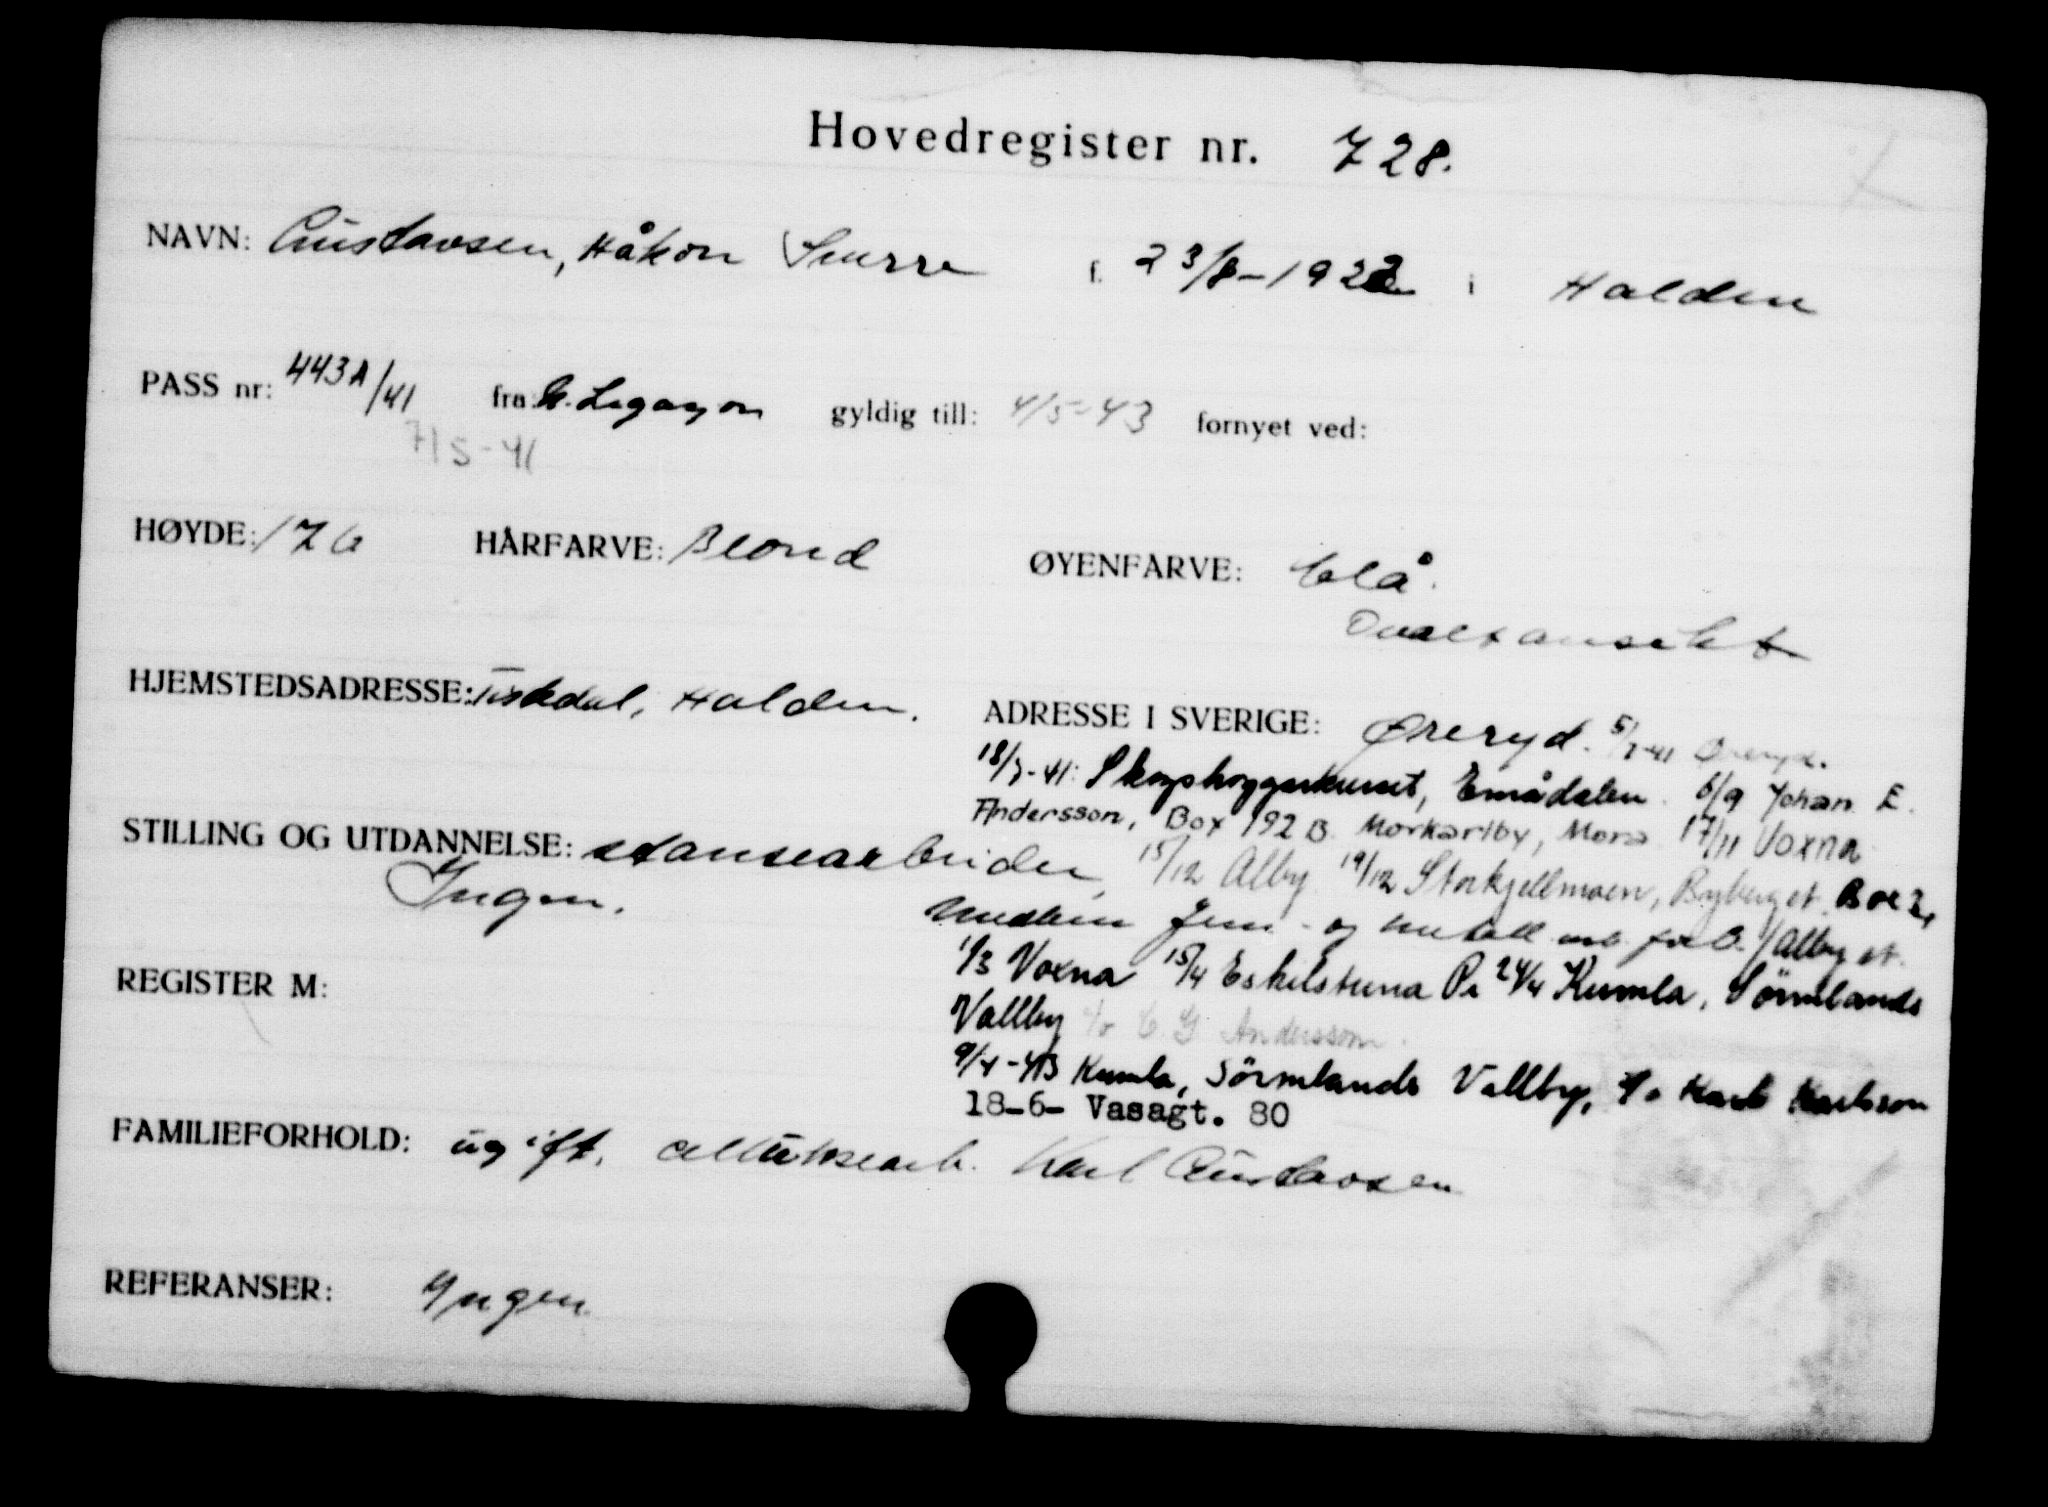 Hovedregister nr. 728.
NAVN: Gustavsen, Håkon Snurre f. 23/8-1922 i Halden
PASS nr: 443A/41 fra: N. Legasjon gyldig till: 4/5-43 fornyet ved:
7/5-41
HØYDE: 176 HÅRFARVE: Blond ØYENFARVE: blå.
Ovalt ansikt
HJEMSTEDSADRESSE: Tistedal, Halden.
ADRESSE I SVERIGE: Øreryd. 5/7-41 Øreryd.
18/7-41: Skogshoggerkurset, Emådalen. 6/9 Johan E.
Andersson, Box 192 B. Morkarlby, Mora 17/11 Voxna
STILLING OG UTDANNELSE: stansearbeider,
15/12 Alby 19/12 Storkjellmoen, Byberget. Box 2,
Ingen.
Medlem Jern- og metall arb. forb. /Alby st.
1/3 Voxna 15/4 Eskilstuna Pr 24/4 Kumla, Sörmlands
REGISTER M:
Vallby c/o C. G Andersson.
9/4-43 Kumla, Sörmlands Vallby, c/o Karl Karlsson
18-6- Vasagt. 80
FAMILIEFORHOLD: ugift. cellulosearb. Karl Gustavsen
REFERANSER: Yngen